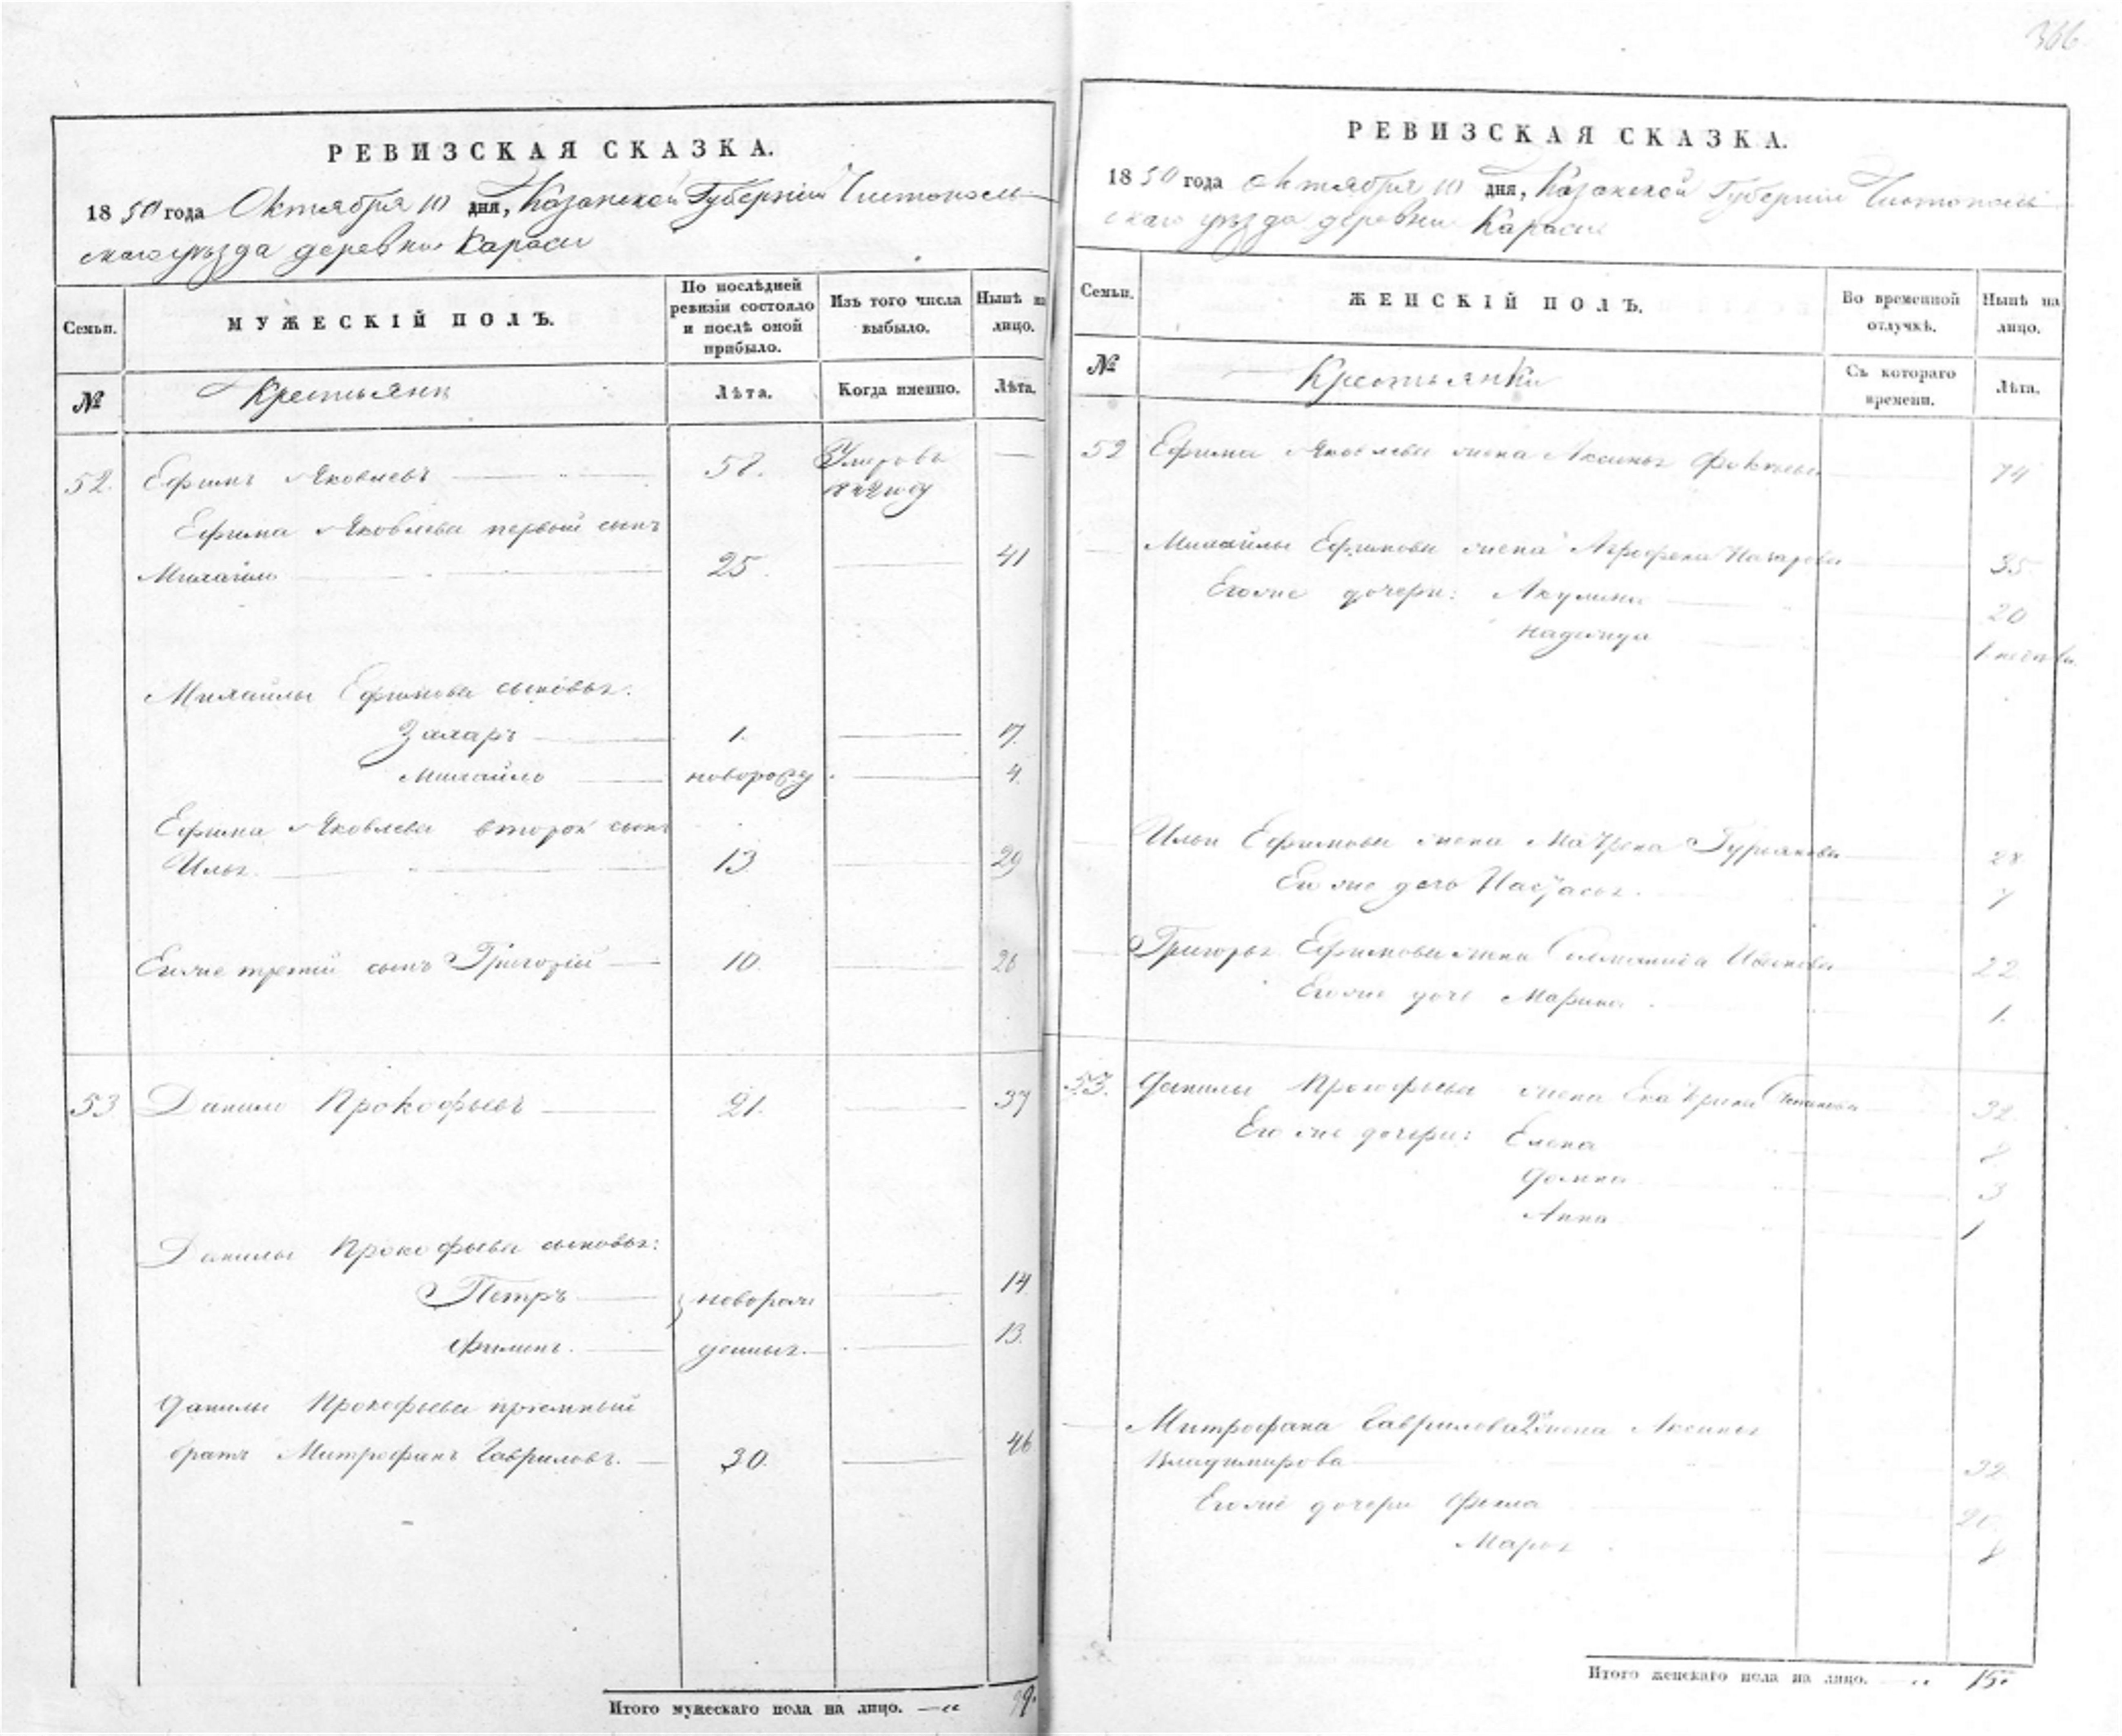 366
РЕВИЗСКАЯ СКАЗКА.
1850 года Октября 10 дня, Казанской Губернии Чистополь-
скаго уѣзда деревни Караси
Семьи.
МУЖЕСКІЙ ПОЛЪ.
По послѣдней ревизіи состояло и послѣ оной прибыло.
Изъ того числа выбыло.
Нынѣ на лицо.
№
Крестьяни
Лѣта.
Когда именно.
Лѣта.
52. Ефимъ Яковлевъ 58. Умеръ въ —
году
Ефима Яковлева первый сынъ
Михайло 25. 41
Михайлы Ефимова сыновья:
Захаръ 1. 17.
Михайло новорожд. 4.
Ефима Яковлева второй сынъ
Илья. 13 29
Его же третій сынъ Григорій 10. 26
53 Данило Прокофьевъ 21. 37
Данилы Прокофьева сыновья:
Петръ новорож 14
Филипъ. денныя. 13.
Данилы Прокофьева пріемный
братъ Митрофанъ Гавриловъ. 30. 46
Итого мужескаго пола на лицо. 9.
РЕВИЗСКАЯ СКАЗКА.
1850 года Октября 10 дня, Казанской Губернии Чистополь
скаго уѣзда деревни Караси
Семьи.
ЖЕНСКІЙ ПОЛЪ.
Во временной отлучкѣ.
Нынѣ на лицо.
№
Крестьянки
Съ котораго времени.
Лѣта.
52 Ефима Яковлева жена Аксинья 74
Михайлы Ефимова жена Агрофена Назарова 35.
Его же дочери: Акулина 20
Надежда 1 недѣли
Ильи Ефимова жена Матрена 28
Его же дочь Настасья. 7
Григорья Ефимова жена Соломонида Иванова 22
Его же дочь Марина. 1.
53. Данилы Прокофьева жена Екатрина Степанова 32.
Его же дочери: Елена 8
Домна 3
Анна 1
Митрофана Гаврилова 2я жена Аксинья
Владимирова 39.
Его же дочери Фекла 20.
Марья 8
Итого женскаго пола на лицо. 15.